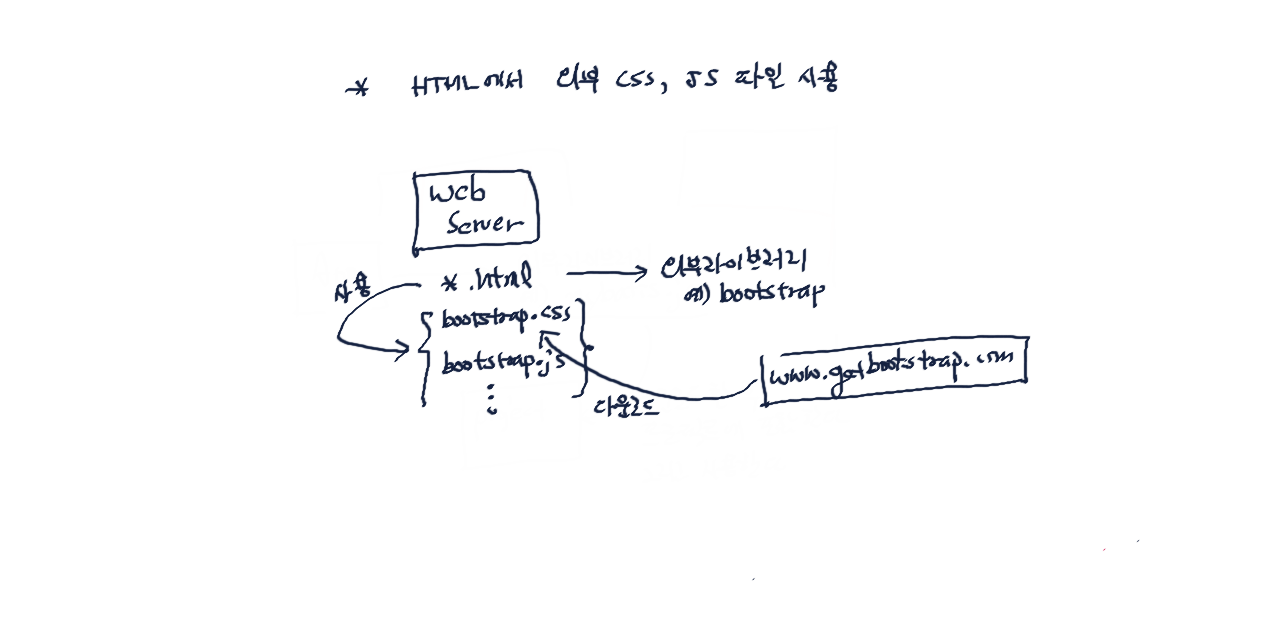 * HTML에서 외부 CSS, JS 파일 사용
Web
Server
사용
*.html
외부라이브러리
예) bootstrap
bootstrap.css
bootstrap.js
⋮
www.getbootstrap.com
다운로드